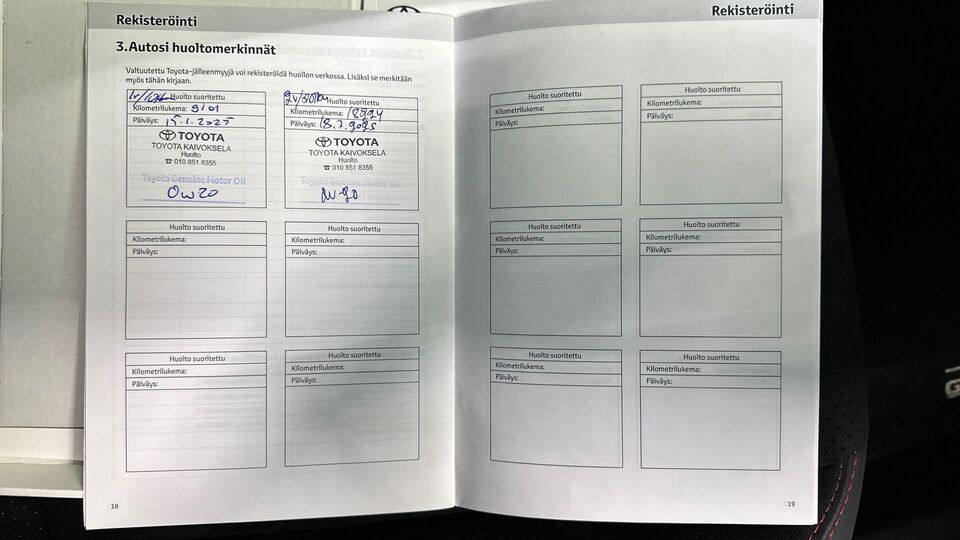 Rekisteröinti
3.Autosi huoltomerkinnät
Valtuutettu Toyota-jälleenmyyjä voi rekisteröidä huollon verkossa. Lisäksi se merkitään
myös tähän kirjaan.
Huolto suoritettu
Kilometrilukema: 9101
Päiväys: 15.1.2025
TOYOTA
TOYOTA KAIVOKSELA
Huolto
☎ 010 851 8355
Toyota Genuine Motor Oil
0w20
2v/30Tkm
Huolto suoritettu
Kilometrilukema:
Päiväys: 18.7.2025
TOYOTA
TOYOTA KAIVOKSELA
Huolto
☎ 010 851 8355
Toyota Genuine Motor Oil
Huolto suoritettu
Kilometrilukema:
Päiväys:
Huolto suoritettu
Kilometrilukema:
Päiväys:
Huolto suoritettu
Kilometrilukema:
Päiväys:
Huolto suoritettu
Kilometrilukema:
Päiväys:
18
Rekisteröinti
Huolto suoritettu
Kilometrilukema:
Päiväys:
Huolto suoritettu
Kilometrilukema:
Päiväys:
Huolto suoritettu
Kilometrilukema:
Päiväys:
Huolto suoritettu
Kilometrilukema:
Päiväys:
Huolto suoritettu
Kilometrilukema:
Päiväys:
Huolto suoritettu
Kilometrilukema:
Päiväys:
19